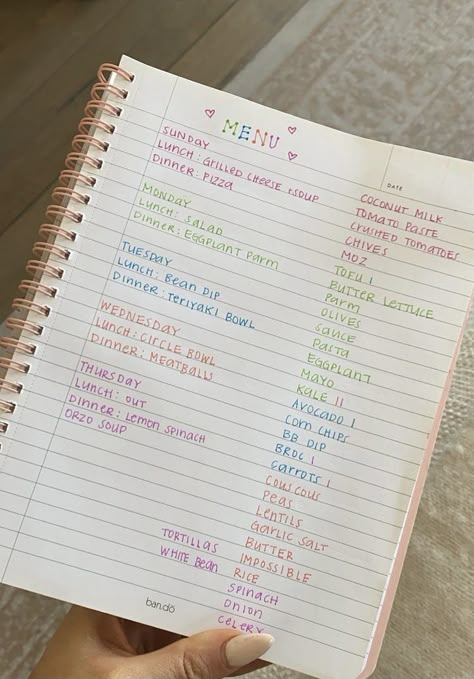 MENU
SUNDAY
LUNCH: GRILLED CHEESE + SOUP
DINNER: PIZZA
MONDAY
LUNCH: SALAD
DINNER: EGGPLANT PARM
TUESDAY
LUNCH: BEAN DIP
DINNER: TERIYAKI BOWL
WEDNESDAY
LUNCH: CIRCLE BOWL
DINNER: MEATBALLS
THURSDAY
LUNCH: OUT
DINNER: LEMON SPINACH
ORZO SOUP
DATE
COCONUT MILK
TOMATO PASTE
CRUSHED TOMATOES
CHIVES
MOZ
TOFU 1
BUTTER LETTUCE
PARM
OLIVES
SAUCE
PASTA
EGGPLANT
MAYO
KALE II
AVOCADO 1
CORN CHIPS
BB DIP
BROC 1
CARROTS 1
COUSCOUS
PEAS
LENTILS
GARLIC SALT
BUTTER
IMPOSSIBLE
RICE
SPINACH
ONION
CELERY
TORTILLAS
WHITE BEAN
ban.dō